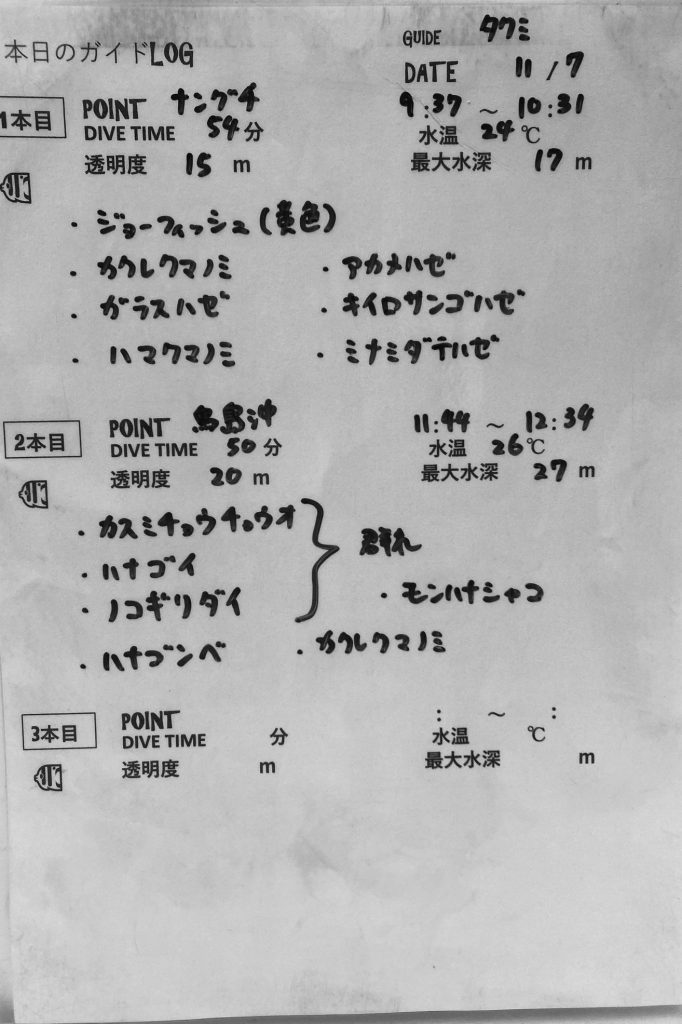 本日のガイドLOG
GUIDE タクミ
DATE 11 / 7
1本目 POINT ナングチ 9:37 ～ 10:31
DIVE TIME 54分 水温 24℃
透明度 15 m 最大水深 17 m
・ジョーフィッシュ(黄色)
・カクレクマノミ ・アカメハゼ
・ガラスハゼ ・キイロサンゴハゼ
・ハマクマノミ ・ミナミダテハゼ
2本目 POINT 鳥島沖 11:44 ～ 12:34
DIVE TIME 50分 水温 26℃
透明度 20 m 最大水深 27 m
・カスミチョウチョウウオ
・ハナゴイ
・ノコギリダイ
群れ
・モンハナシャコ
・ハナゴンベ ・カクレクマノミ
3本目 POINT : ～ :
DIVE TIME 分 水温 ℃
透明度 m 最大水深 m